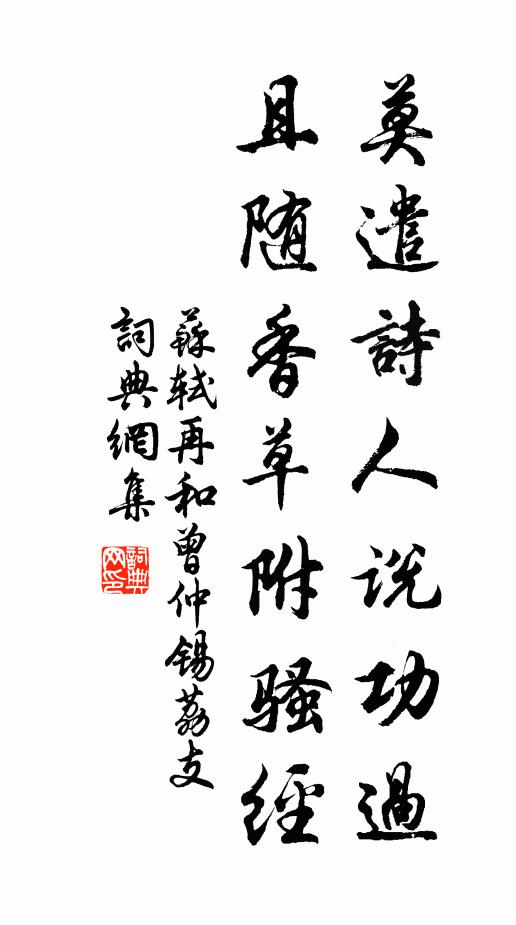 莫遣詩人说功過
且随香草附骚經
蘇軾再和曾仲锡荔支
詞典網集
詞典网印